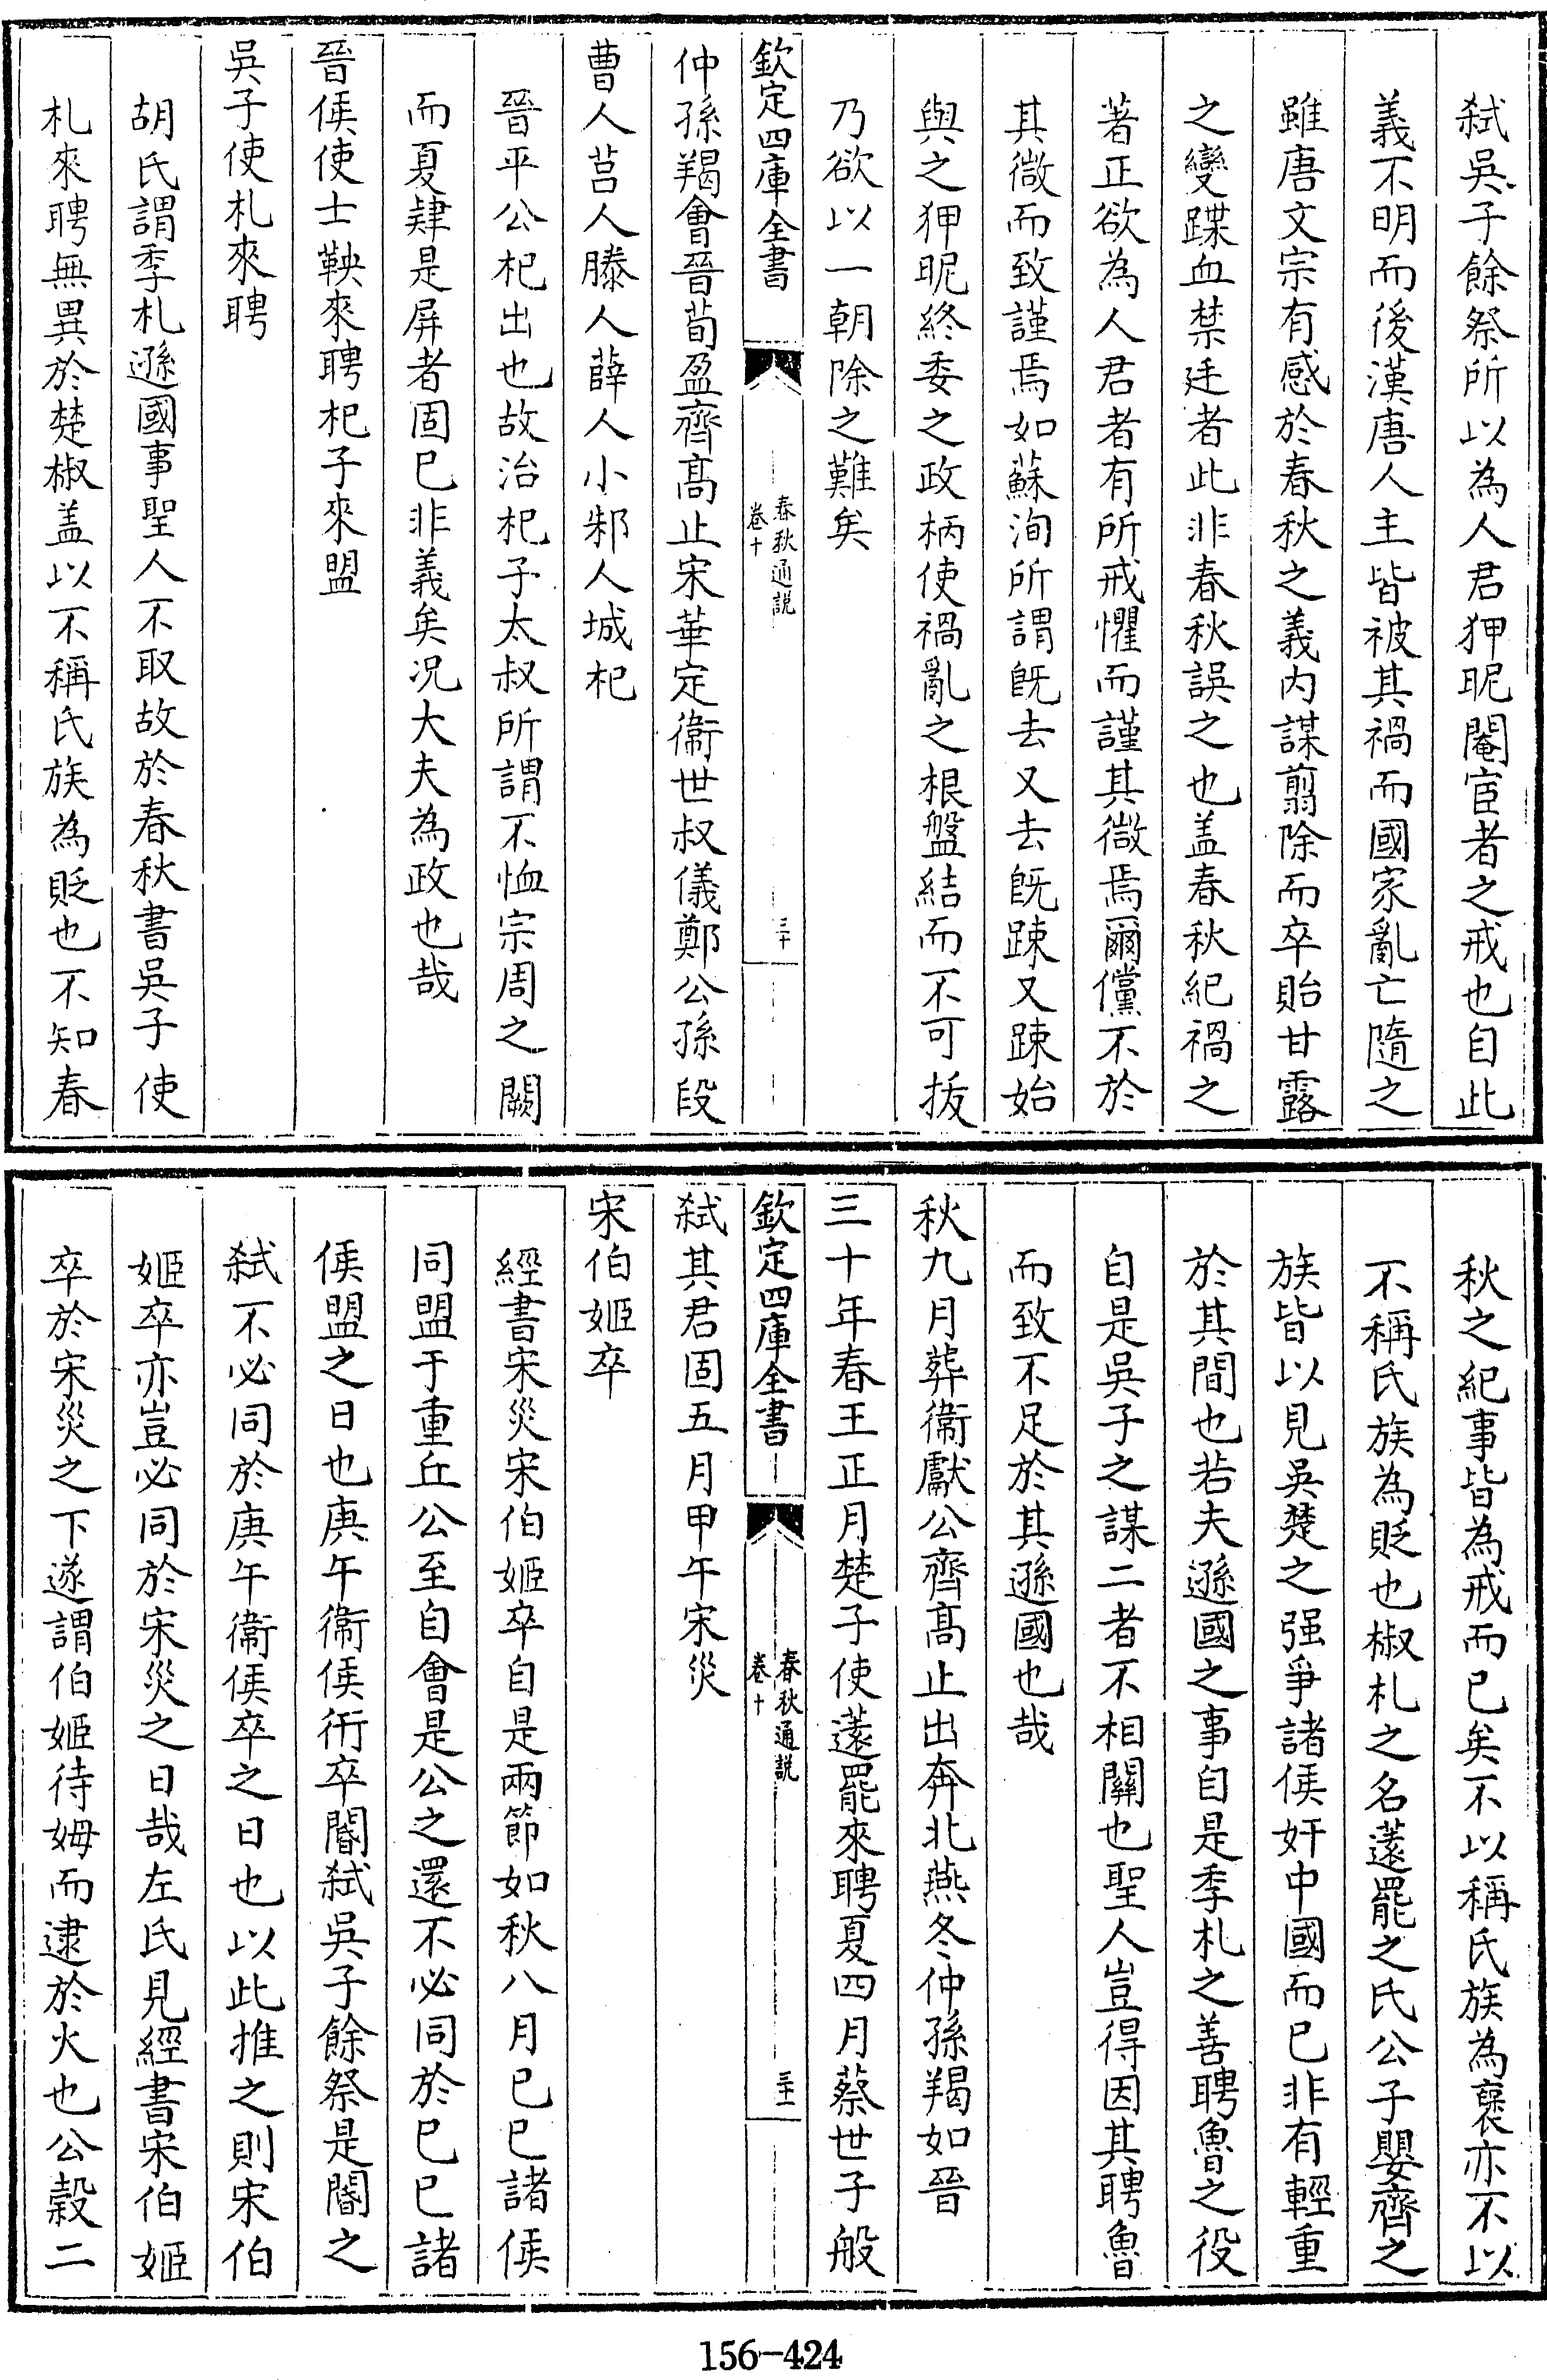 弑吳子餘祭所以為人君狎昵閹宦者之戒也自此
義不明而後漢唐人主皆被其禍而國家亂亡隨之
雖唐文宗有感於春秋之義内謀翦除而卒貽甘露
之變蹀血禁廷者此非春秋誤之也盖春秋紀禍之
著正欲為人君者有所戒懼而謹其微焉爾儻不於
其微而致謹焉如蘇洵所謂旣去又去旣踈又踈始
與之狎昵終委之政柄使禍亂之根盤結而不可拔
乃欲以一朝除之難矣
欽定四庫全書
春秋通説
卷十
三十
仲孫羯會晉荀盈齊髙止宋華定衞世叔儀鄭公孫段
曹人莒人滕人薛人小邾人城杞
晉平公杞出也故治杞子太叔所謂不恤宗周之闕
而夏肄是屏者固已非義矣况大夫為政也哉
晉侯使士鞅來聘杞子來盟
吳子使札來聘
胡氏謂季札遜國事聖人不取故於春秋書吳子使
札來聘無異於楚椒盖以不稱氏族為貶也不知春
秋之紀事皆為戒而已矣不以稱氏族為襃亦不以
不稱氏族為貶也椒札之名薳罷之氏公子嬰齊之
族皆以見吳楚之强爭諸侯奸中國而已非有輕重
於其間也若夫遜國之事自是季札之善聘魯之役
自是吳子之謀二者不相關也聖人豈得因其聘魯
而致不足於其遜國也哉
秋九月葬衞獻公齊髙止出奔北燕冬仲孫羯如晉
三十年春王正月楚子使薳罷來聘夏四月蔡世子般
欽定四庫全書
春秋通説
卷十
三十一
弑其君固五月甲午宋災
宋伯姬卒
經書宋災宋伯姬卒自是兩節如秋八月已已諸侯
同盟于重丘公至自會是公之還不必同於已已諸
侯盟之日也庚午衞侯衎卒閽弑吳子餘祭是閽之
弑不必同於庚午衞侯卒之日也以此推之則宋伯
姬卒亦豈必同於宋災之日哉左氏見經書宋伯姬
卒於宋災之下遂謂伯姬待姆而逮於火也公穀二
156-424